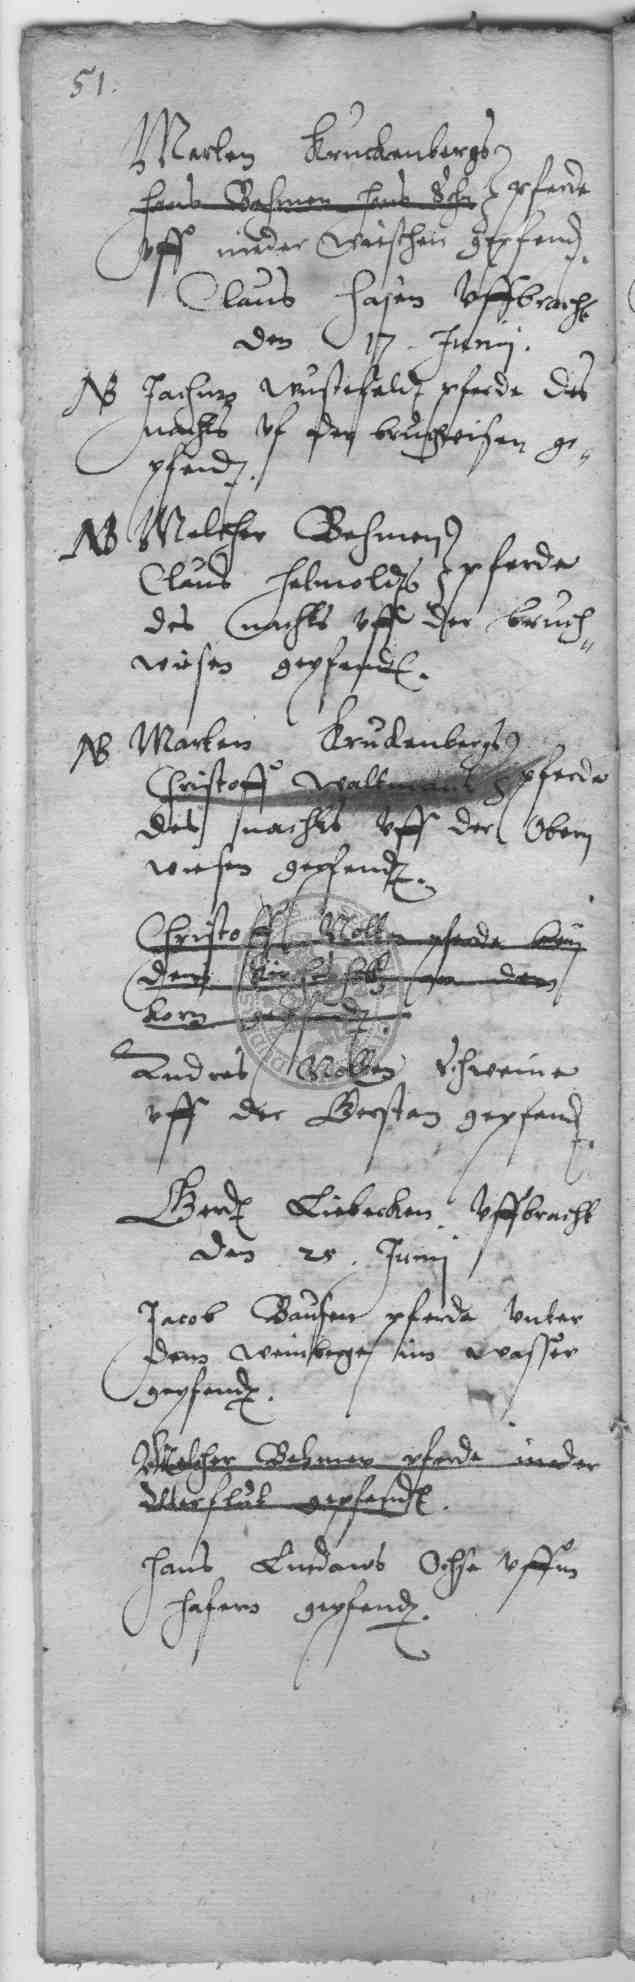 51.
Merten Kruckenbergs
Hans Behmen Hans Sohn pferde
vff in der wischen gepfend.
Claus Hasen vffbracht
den 17. Junij.
NB Jachim wustefeldt pferde des
nachts vf der bruchwisen ge„
pfend.
NB Melcher Behmen
Claus Helmolds pferde
des nachts vff der bruch„
wiesen gepfendt.
NB Marten Kruckenbergs
Christoff Waltman pferde
des nachts vff der Obern
wiesen gepfendt.
Christoff Nolten pferde bey
dem in dem
korn gepfendt.
Andres Nolten Schweine
vff der Gersten gepfend.
Gerdt Liebecken vffbracht
den 25. Junij
Jacob Bausen pferde vnter
dem weinberge im wasser
gepfendt.
Melcher Behmen pferde in der
gepfendt.
Hans Ludaws Ochse vffm
hafern gepfend.